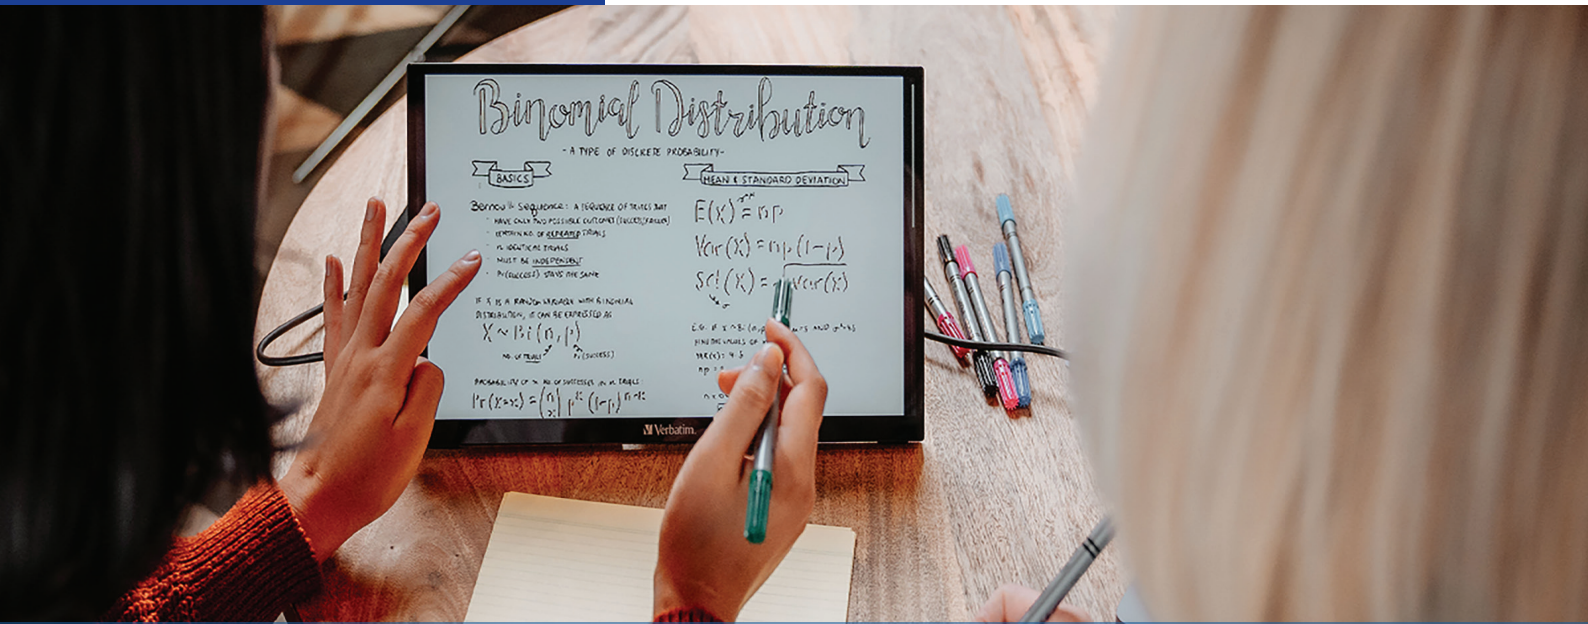 Binomial Distribution
- A TYPE OF DISCRETE PROBABILITY-
BASICS
Bernoulli Sequence: A SEQUENCE OF TRIALS THAT
HAVE ONLY TWO POSSIBLE OUTCOMES (SUCCESS/FAILURE)
CERTAIN NO. OF REPEATED TRIALS
n IDENTICAL TRIALS
MUST BE INDEPENDENT
Pr(SUCCESS) STAYS THE SAME
IF X IS A RANDOM VARIABLE WITH BINOMIAL
DISTRIBUTION, IT CAN BE EXPRESSED AS
X ~ Bi(n, p)
NO. OF TRIALS Pr(SUCCESS)
PROBABILITY OF x NO. OF SUCCESSES IN n TRIALS:
Pr(X=x) = (n x) p^x (1-p)^n-x
MEAN & STANDARD DEVIATION
E(X) = np
Var(X) = np(1-p)
Sd(X) = √Var(X)
E.G. IF X ~ Bi(n, p
FIND THE VALUES OF
VAR(X) = 4.8
np =
Verbatim.